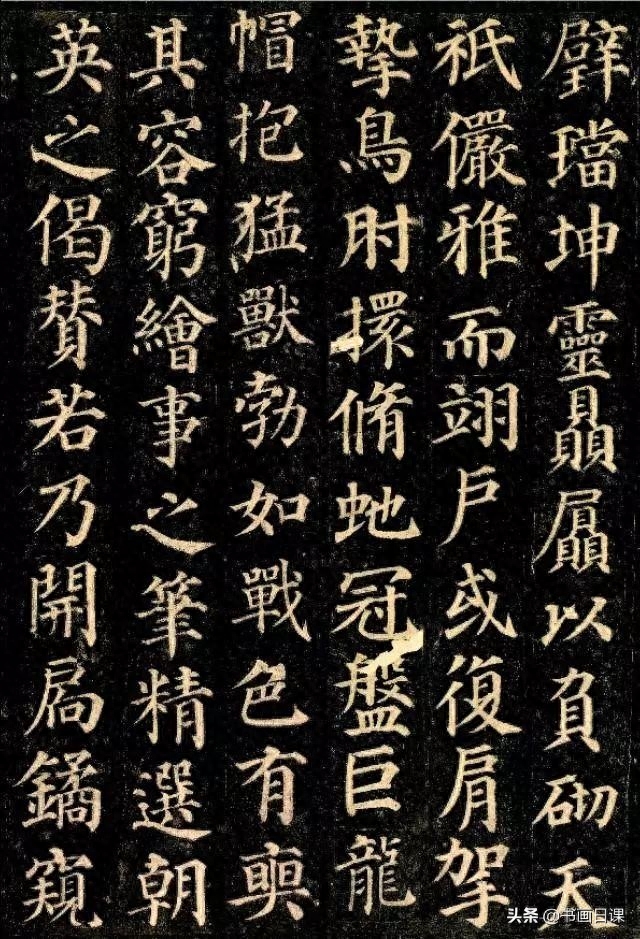 壁璫坤靈贔屭以負砌天
祇儼雅而翊戶或復肩挐
摯鳥肘擐脩虵冠盤巨龍
帽抱猛獸勃如戰色有奭
其容窮繪事之筆精選朝
英之偈贊若乃開扃鐍窺
头条 @书画日课